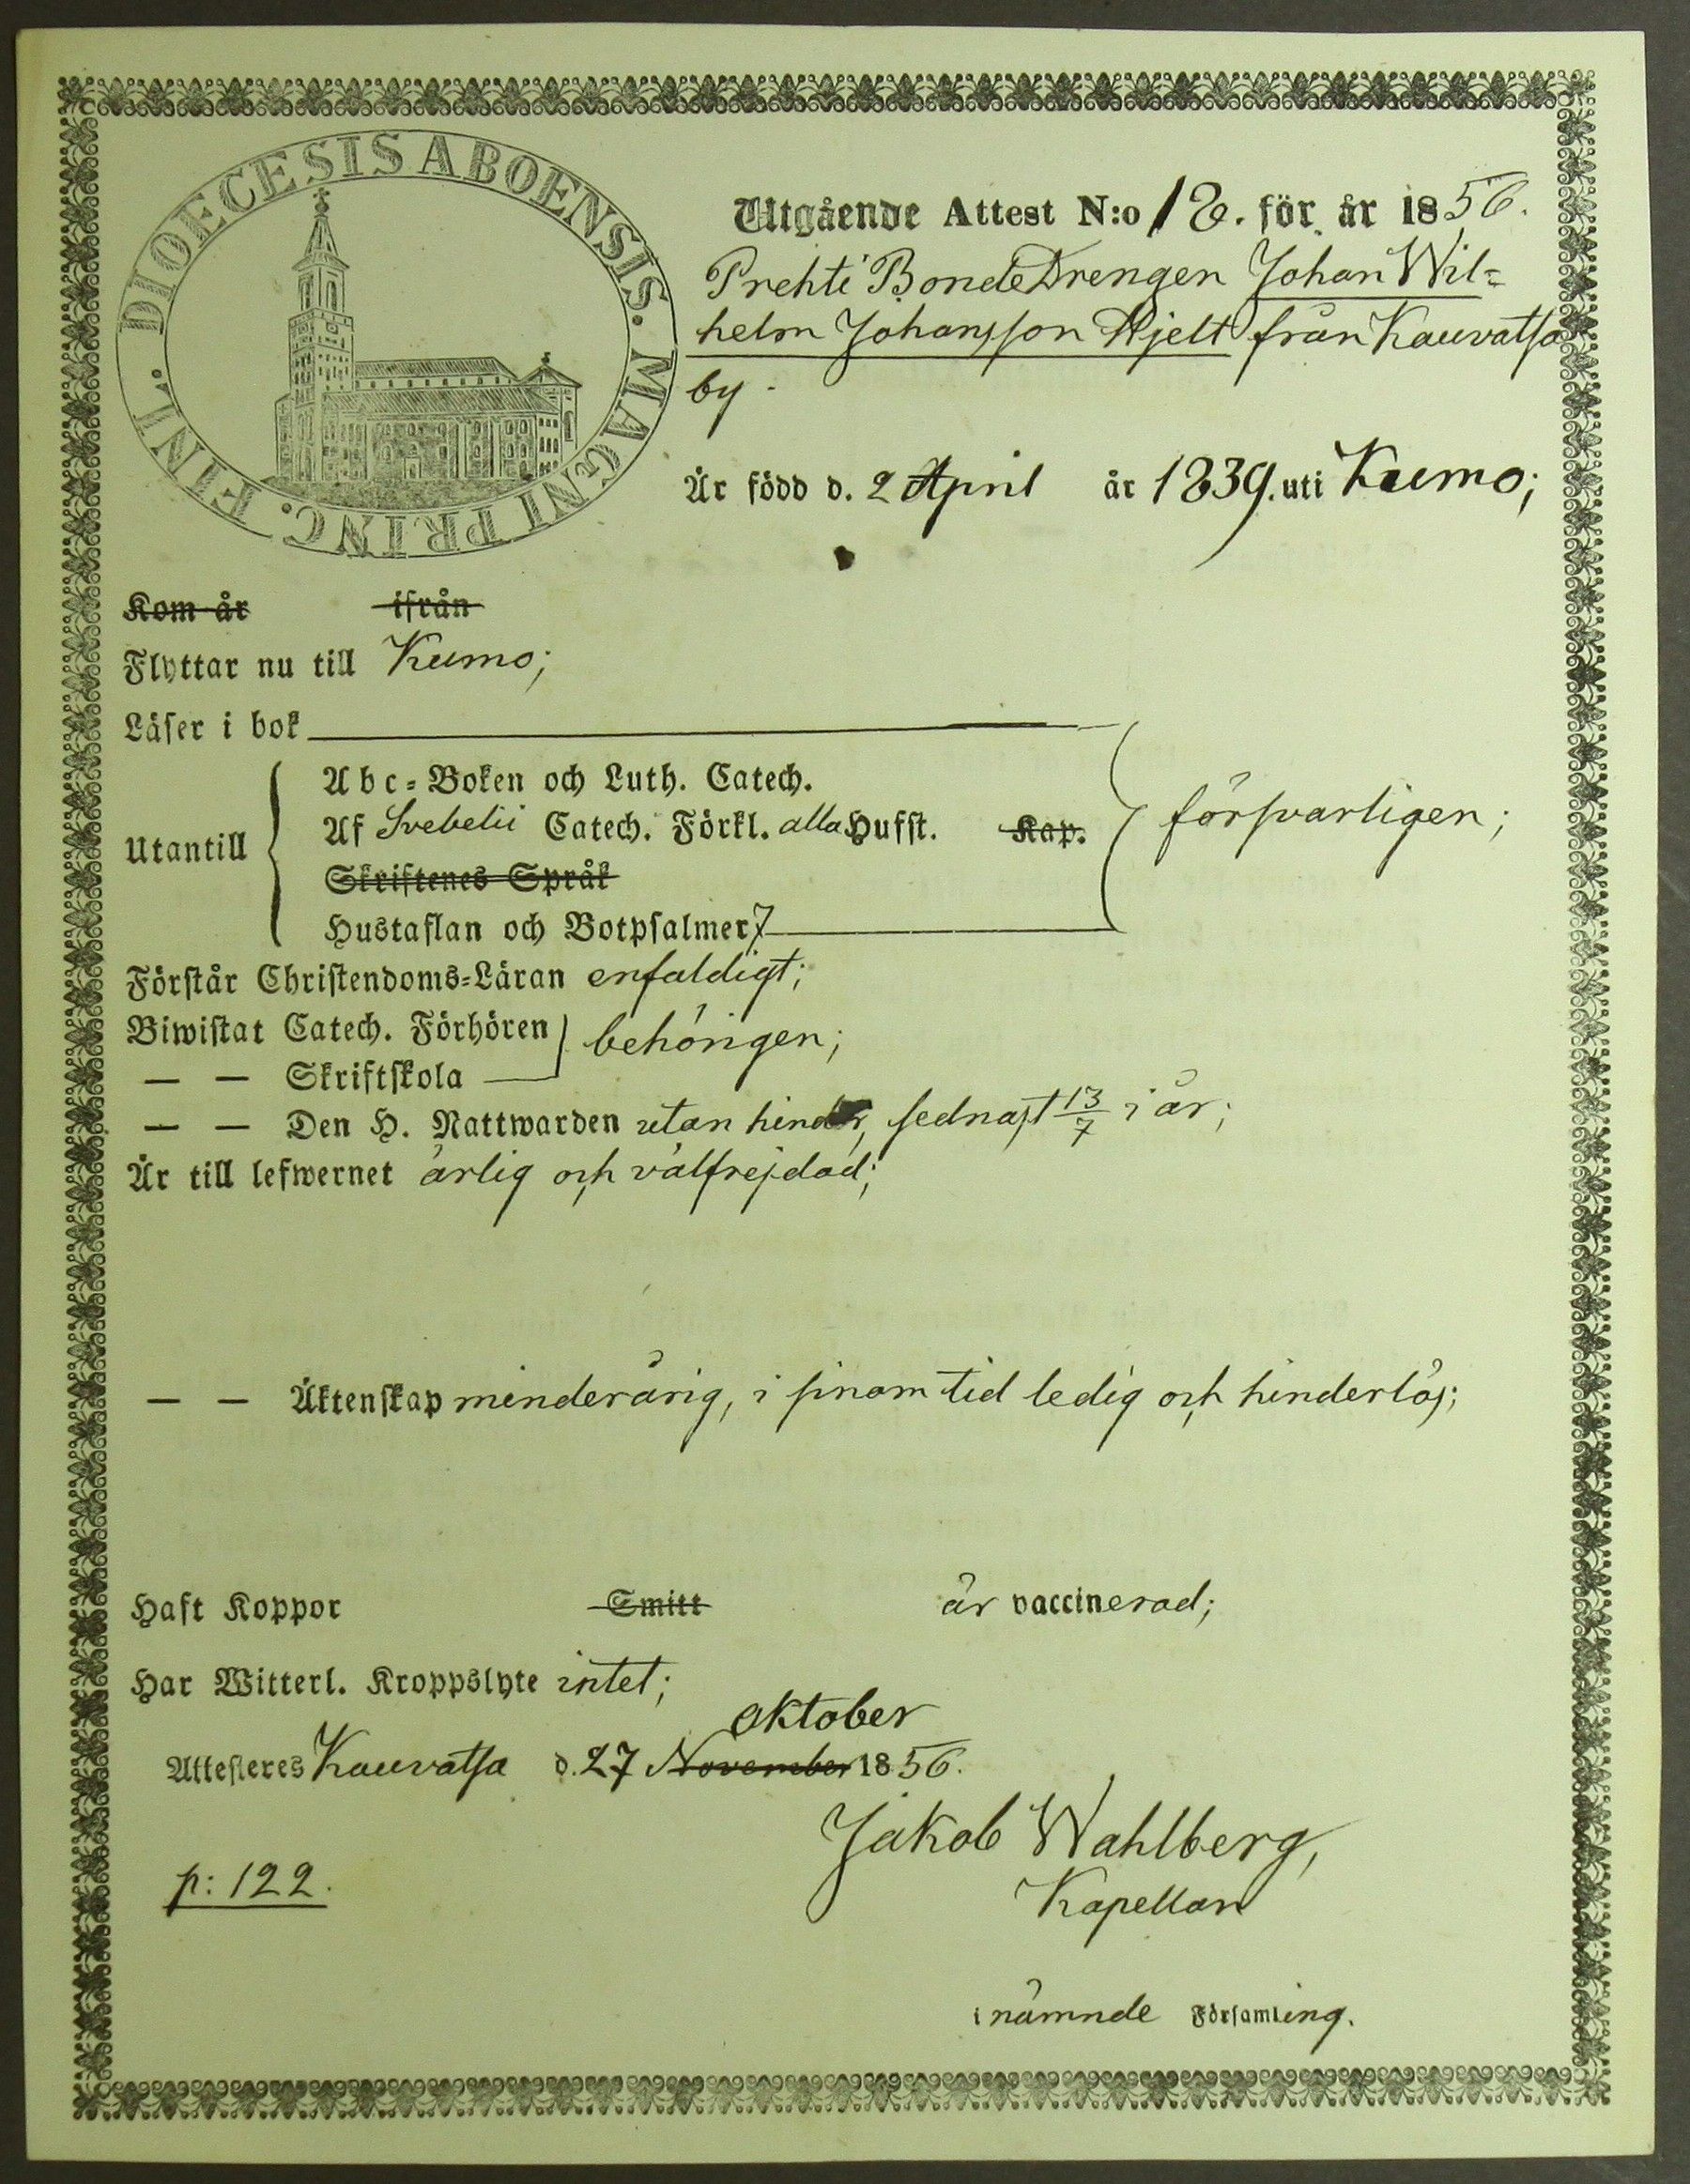 DIOECESIS ABOENSIS. MAGNI PRINC. FINL.
Utgående Attest N:o 18. för år 1856.
Prehti BondeDrengen Johan Wil=
helm Johansson Hjelt från Kauvatsa
by.
Är född d. 2 April år 1839. uti Kumo;
Kom år ifrån
Flyttar nu till Kumo;
Läser i bok
Utantill
Abc=Boken och Luth. Catech.
Af Svebelii Catech. Förkl. alla Hufst. Kap.
försvarligen;
Skriftenes Språk
Hustaflan och Botpsalmer 7
Förstår Christendoms=Läran enfaldigt;
Biwistat Catech. Förhören
behörigen;
— — Skriftskola
— — Den H. Nattwarden utan hinder, sednast 13/7 i år;
Är till lefwernet ärlig och välfrejdad;
— — Äktenskap minderårig, i sinom tid ledig och hinderlös;
Haft Koppor Smitt är vaccinerad;
Har Witterl. Kroppslyte intet;
oktober
Attesteres Kauvatsa d. 27 November 1856.
Jakob Wahlberg,
Kapellan
p: 122.
i nämnde Församling.